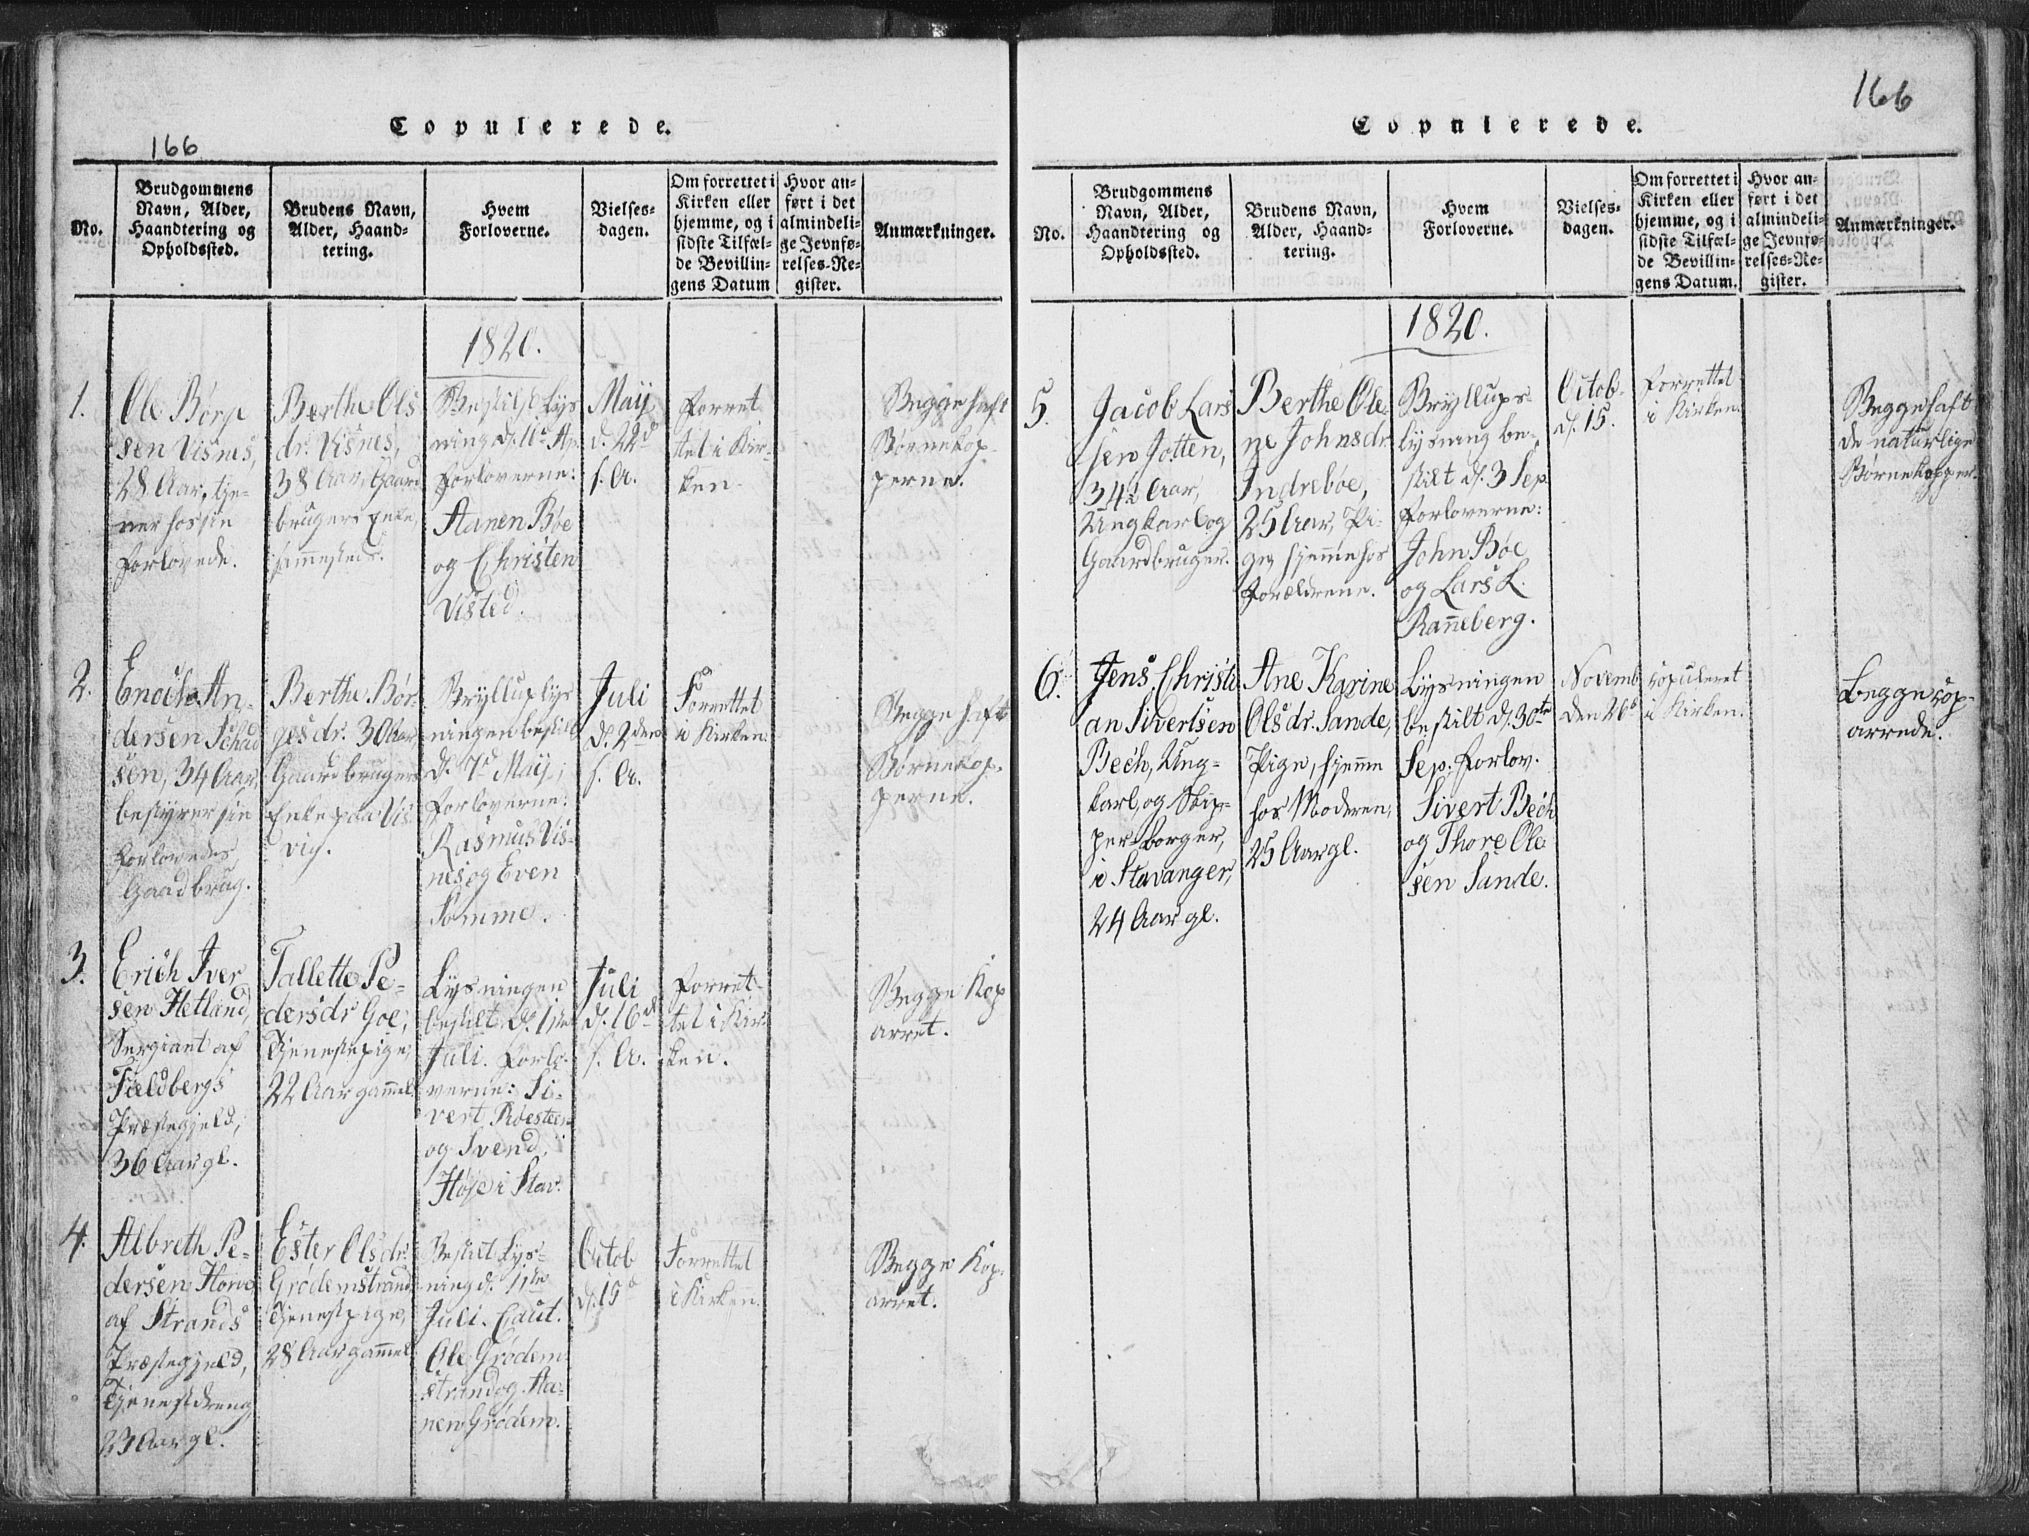 166
Copulerede.
No.
Brudgommens
Navn, Alder,
Haandtering og
Opholdssted.
Brudens Navn,
Alder, Haand-
tering.
Hvem
Forloverne.
Vielses-
dagen.
Om forrettet i
Kirken eller
hjemme, og i
sidste Tilfæl-
de Bevillin-
gens Datum
Hvor an-
ført i det
almindeli-
ge Jevnfø-
relses-Re-
gister.
Anmærkninger.
1820.
1.
Ole Børge
sen Visnes,
28 Aar, tje-
ner hos sin
Forlovede.
Berthe Ols
dr. Visnes,
38 Aar, Gaard
brugers Enke,
sammesteds.
Bestilt Lys
ning d. 11te Ap.
Forloverne:
Aanen Bøe
og Christen
Visted.
Maij
d. 22d
s. A.
Forret
tet i Kir-
ken.
Begge haft
Børnekop-
perne.
2.
Enoch An-
dersen Schad
sen, 34 Aar,
bestyrer sin
Forlovedes
Gaardbrug.
Berthe Bør-
gesdr. 30 Aar
Gaardbrugers
Enke paa Vis
vig.
Bryllupslys
ningen bestilt
d. 7d Maij;
Forloverne:
Rasmus Vis-
nes og Even
Somme.
Juli
d. 2den
s. A.
Forrettet
i Kirken.
Begge haft
Børnekop-
perne.
3.
Erich Iver
sen Hetland,
Sergiant af
Fieldbergs
Præstegjeld,
36 Aar gl.
Tallette Pe-
dersdr Goe,
Tjenestepige,
22 Aar gammel
Lysningen
bestilt d. 1ste
Juli. Forlo-
verne: Si-
vert Roesteen
og Svend
Høye i Stav.
Juli
d. 16d
s. A.
Forret
tet i Kir-
ken.
Begge Kop
arret.
4.
Albreth Pe-
dersen Horve
af Strands
Præstegjeld,
Tjenestdreng
23 Aar gl.
Ester Olsdr.
Grødemstrand
Tjenestpige,
28 Aar gammel
Bestilt Lys-
ning d. 11te
Juli. Caut.
Ole Grødem
strand og Aa-
nen Grødem.
Octob
d. 15d
Forrettet
i Kirken.
Begge Kop-
arret.
166
Copulerede.
No.
Brudgommens
Navn, Alder,
Haandtering og
Opholdssted.
Brudens Navn,
Alder, Haand-
tering.
Hvem
Forloverne.
Vielses-
dagen.
Om forrettet i
Kirken eller
hjemme, og i
sidste Tilfæl-
de Bevillin-
gens Datum.
Hvor an-
ført i det
almindeli-
ge Jevnfø-
relses-Re-
gister.
Anmærkninger.
1820.
5.
Jacob Lars
sen Jotten,
34 Aar,
Ungkarl og
Gaardbruger.
Berthe Ole
ne Johnsdr
Indrebøe,
25 Aar, Pi-
ge, hjemme hos
Forældrene.
Bryllups-
lysning be-
stilt d. 3 Sep.
Forloverne:
John Bøe
og Lars L.
Ranneberg.
Octob.
d. 15.
Forrettet
i Kirken.
Begge haft
de naturlige
Børnekopper.
6.
Jens Christi
an Sivertsen
Bech, Ung-
karl, og Skip-
per-borger,
i Stavanger,
24 Aar gl.
Ane Karine
Olsdr. Sande,
Pige, hjemme
hos Moderen,
25 Aar gl.
Lysningen
bestilt d. 30te
Sep. Forlov.
Sivert Bech
og Thore Ole
sen Sande.
Novemb
den 26d
copuleret
i Kirken.
begge cop-
arrede.